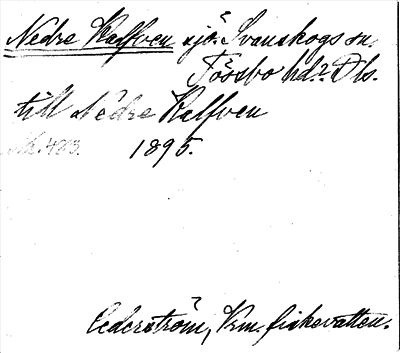 Nedre Kalfven sjö. Svanskogs sn.
Tössbo hd. Dls.
till Nedre Kalfven
1895.
Cederström, Vrm. fiskevatten.